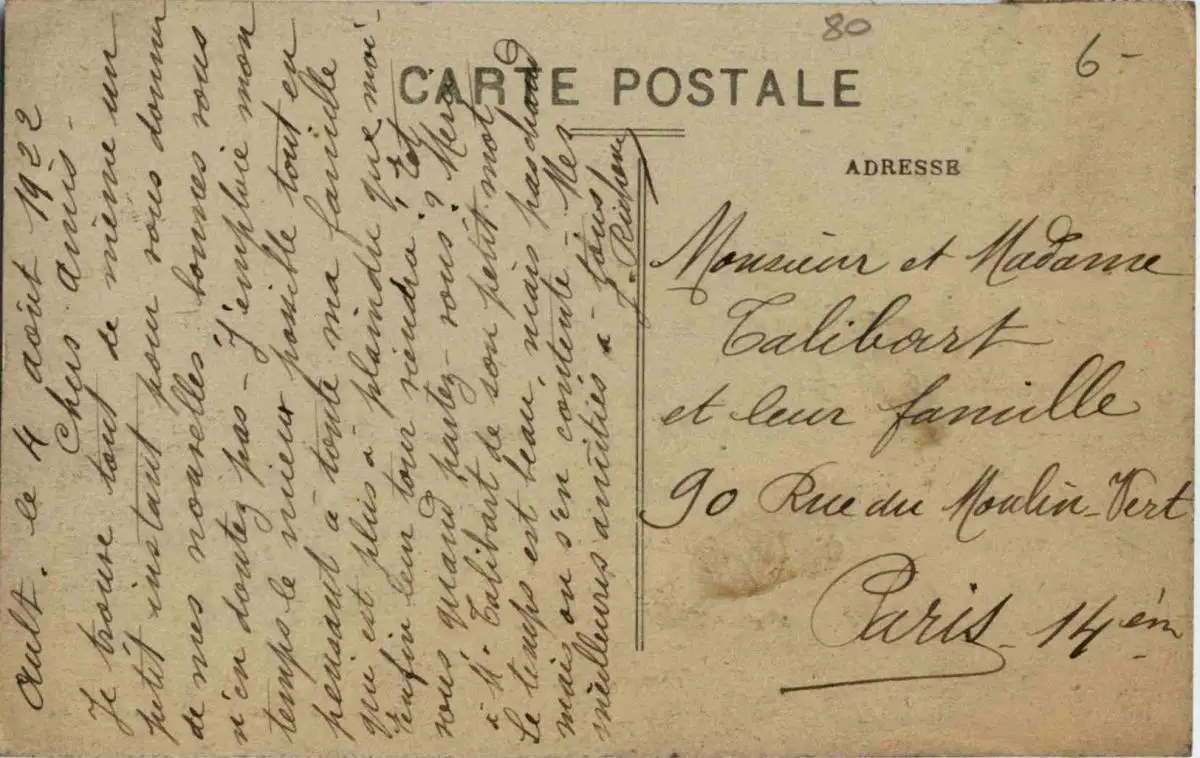 80
6-
CARTE POSTALE
ADRESSE
Monsieur et Madame
Talibart
et leur famille
90 Rue du Moulin-Vert
Paris 14èm
Ault. le 4 août 1922
Chers amis-
Je trouve tout de même un
petit instant pour vous donner
de mes nouvelles bonnes vous
n'en doutez pas - J'emploie mon
temps le mieux possible tout en
pensant à toute ma famille
qui est plus à plaindre que moi-
Enfin leur tour viendra, Et
vous quand partez-vous? Merci
à M. Talibart de son petit mot
Le temps est beau, mais pas chaud
mais on s'en contente Mes
meilleures amitiés à tous